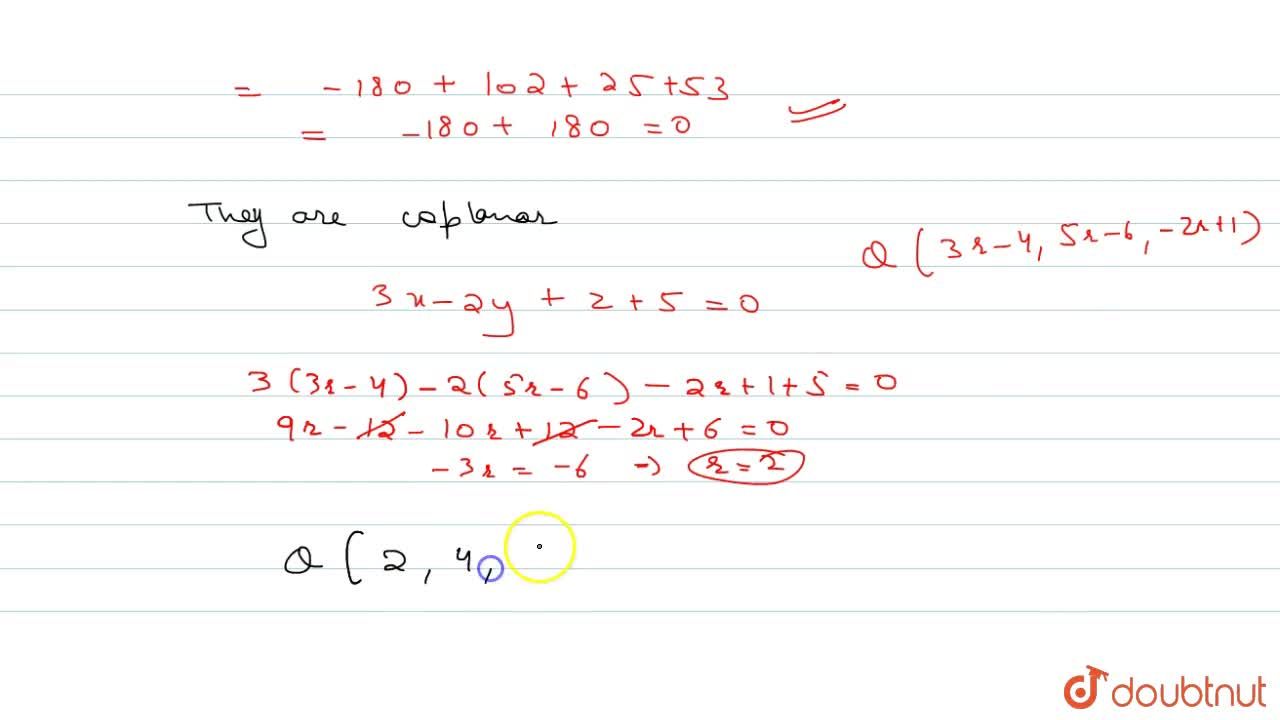 = -180 + 102 + 25 + 53
= -180 + 180 = 0
They are coplanar
Q (3r-4, 5r-6, -2r+1)
3x - 2y + z + 5 = 0
3 (3r-4) - 2 (5r-6) - 2r + 1 + 5 = 0
9r - 12 - 10r + 12 - 2r + 6 = 0
-3r = -6 → r = 2
Q ( 2, 4,
doubtnut